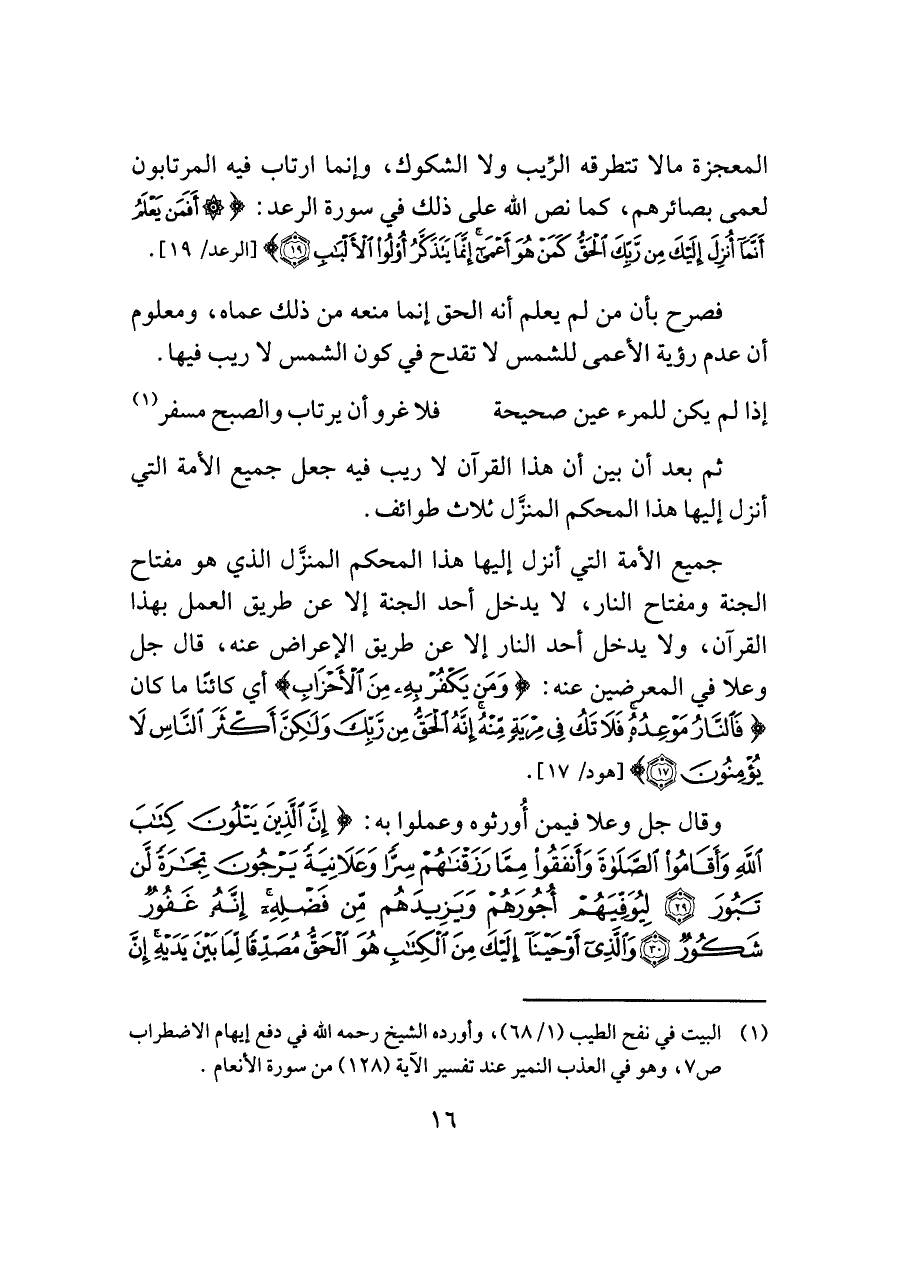 المعجزة مالا تتطرقه الرِّيب ولا الشكوك، وإنما ارتاب فيه المرتابون
لعمى بصائرهم، كما نص الله على ذلك في سورة الرعد: ﴿ ۞ أَفَمَن يَعْلَمُ
أَنَّمَآ أُنزِلَ إِلَيْكَ مِن رَّبِّكَ ٱلْحَقُّ كَمَنْ هُوَ أَعْمَىٰٓ ۚ إِنَّمَا يَتَذَكَّرُ أُو۟لُوا۟ ٱلْأَلْبَـٰبِ ۝١٩﴾ [الرعد/ ١٩].
فصرح بأن من لم يعلم أنه الحق إنما منعه من ذلك عماه، ومعلوم
أن عدم رؤية الأعمى للشمس لا تقدح في كون الشمس لا ريب فيها.
إذا لم يكن للمرء عين صحيحة فلا غرو أن يرتاب والصبح مسفر(١)
ثم بعد أن بين أن هذا القرآن لا ريب فيه جعل جميع الأمة التي
أنزل إليها هذا المحكم المنزَّل ثلاث طوائف.
جميع الأمة التي أنزل إليها هذا المحكم المنزَّل الذي هو مفتاح
الجنة ومفتاح النار، لا يدخل أحد الجنة إلا عن طريق العمل بهذا
القرآن، ولا يدخل أحد النار إلا عن طريق الإعراض عنه، قال جل
وعلا في المعرضين عنه: ﴿ وَمَن يَكْفُرْ بِهِۦ مِنَ ٱلْأَحْزَابِ﴾ أي كائنًا ما كان
﴿ فَٱلنَّارُ مَوْعِدُهُۥ ۚ فَلَا تَكُ فِى مِرْيَةٍ مِّنْهُ ۚ إِنَّهُ ٱلْحَقُّ مِن رَّبِّكَ وَلَـٰكِنَّ أَكْثَرَ ٱلنَّاسِ لَا
يُؤْمِنُونَ ۝١٧﴾ [هود/ ١٧].
وقال جل وعلا فيمن أُورثوه وعملوا به: ﴿ إِنَّ ٱلَّذِينَ يَتْلُونَ كِتَـٰبَ
ٱللَّهِ وَأَقَامُوا۟ ٱلصَّلَوٰةَ وَأَنفَقُوا۟ مِمَّا رَزَقْنَـٰهُمْ سِرًّا وَعَلَانِيَةً يَرْجُونَ تِجَـٰرَةً لَّن
تَبُورَ ۝٢٩ لِيُوَفِّيَهُمْ أُجُورَهُمْ وَيَزِيدَهُم مِّن فَضْلِهِۦٓ ۚ إِنَّهُۥ غَفُورٌ
شَكُورٌ ۝٣٠ وَٱلَّذِىٓ أَوْحَيْنَآ إِلَيْكَ مِنَ ٱلْكِتَـٰبِ هُوَ ٱلْحَقُّ مُصَدِّقًا لِّمَا بَيْنَ يَدَيْهِ ۗ إِنَّ
(١) البيت في نفح الطيب (١/ ٦٨)، وأورده الشيخ رحمه الله في دفع إيهام الاضطراب
ص٧، وهو في العذب النمير عند تفسير الآية (١٢٨) من سورة الأنعام .
١٦